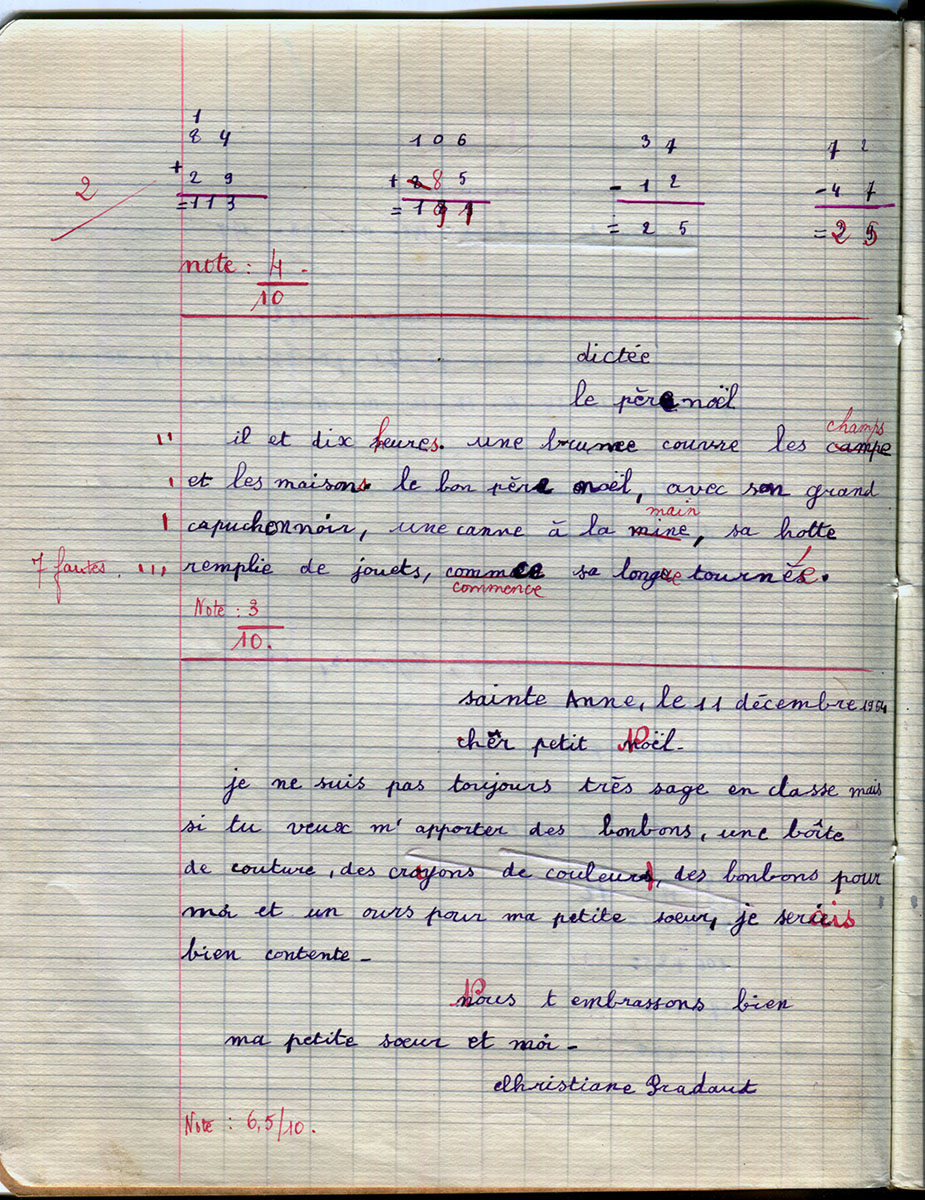 1
8 4 1 0 6 3 7 7 2
+ 2 9 + 8 5 - 1 2 - 4 7
2
= 1 1 3 = 1 9 1 = 2 5 = 2 5
note : 4
10
dictée
le père noël
champs
il et dix heures. une brume couvre les campe
et les maisons le bon père noël, avec son grand
main
capuchonnoir, une canne à la mine, sa hotte
7 fautes. remplie de jouets, commce sa longue tournés.
commence
Note : 3
10.
sainte Anne, le 11 décembre 1964
chèr petit Noël-
je ne suis pas toujours très sage en classe mais
si tu veux m' apporter des bonbons, une boîte
de couture, des crayons de couleurs, des bonbons pour
moi et un ours pour ma petite soeur, je serais
bien contente -
Nous t embrassons bien
ma petite soeur et moi -
Christiane Pradaut
Note : 6,5/10.